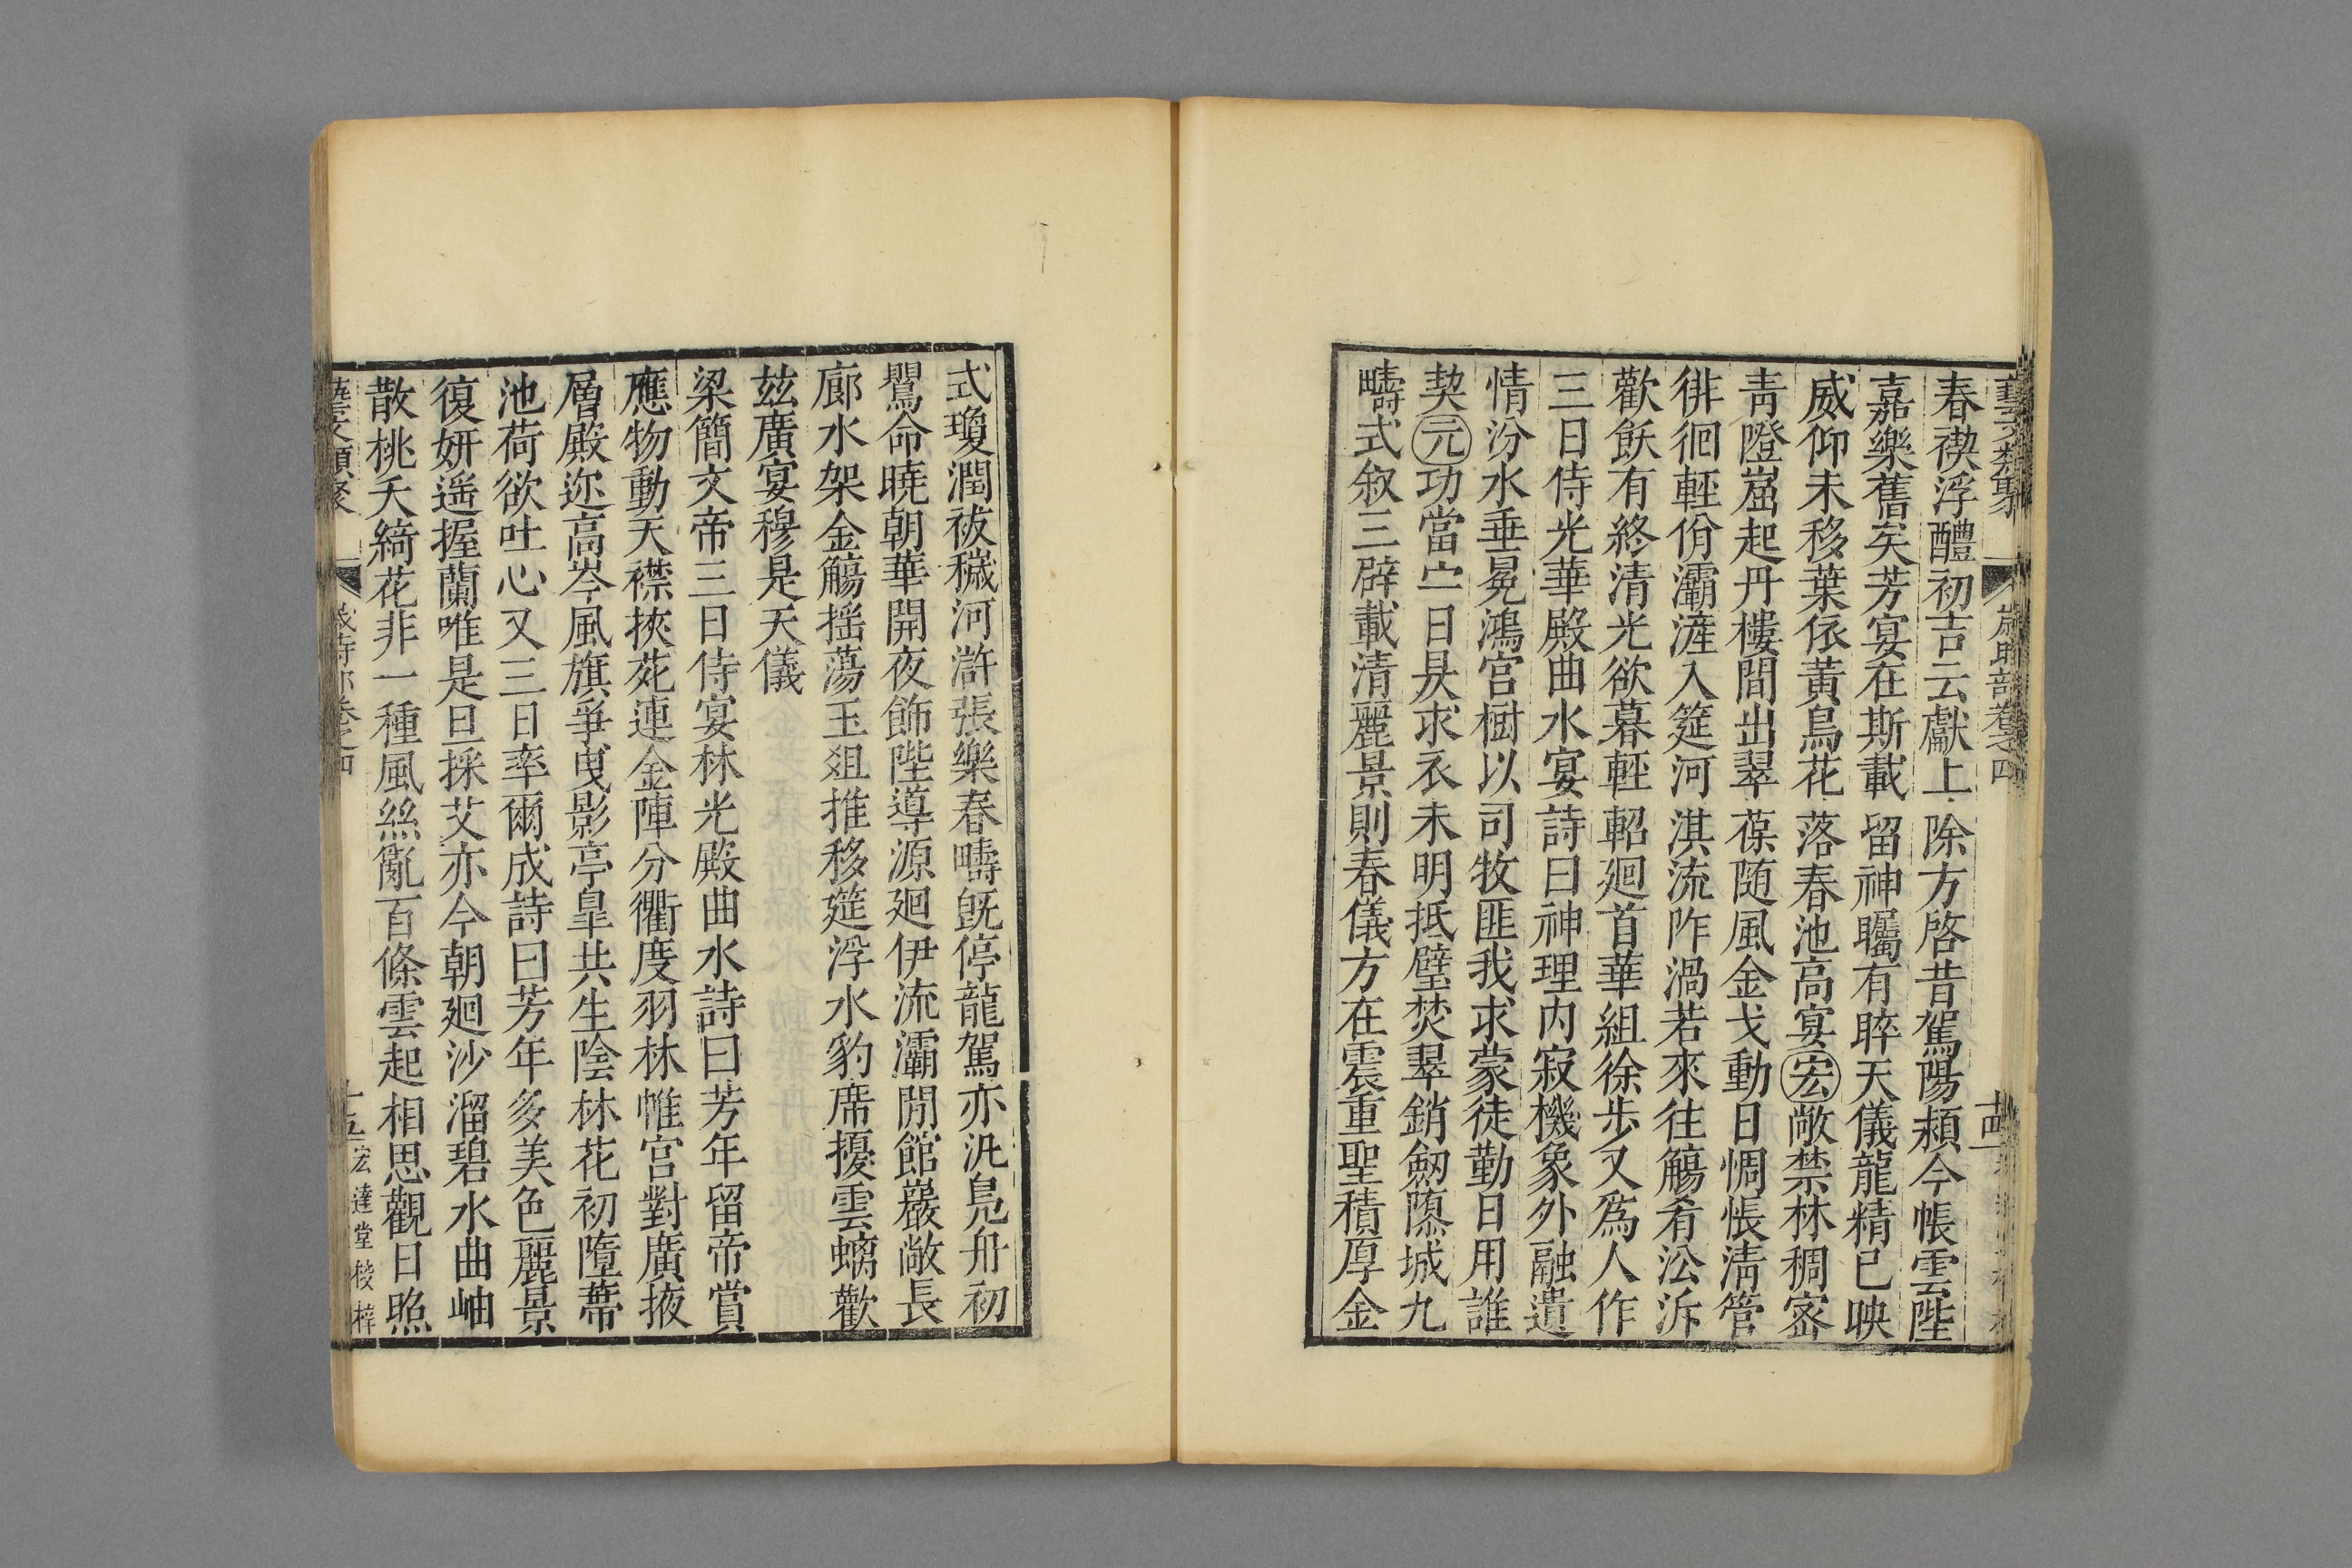 藝文類聚 歲時部卷之四 十四
春禊浮醴初吉云獻上除方啓昔駕陽潁今帳雲陛
嘉樂舊矣芳宴在斯載留神矚有睟天儀龍精已映
威仰未移葉依黃鳥花落春池高宴宏敞禁林稠密
靑嶝崫起丹樓間出翠葆随風金戈動日惆悵淸管
徘徊輕佾灞滻入筵河淇流阼渦若來往觴肴沿泝
歡飫有終清光欲暮輕軺廻首華組徐步又爲人作
三日侍光華殿曲水宴詩曰神理內寂機象外融遺
情汾水垂冕鴻宮樹以司牧匪我求蒙徒勤日用誰
契元功當宁日昃求衣未明抵璧焚翠銷劒隳城九
疇式叙三辟載清麗景則春儀方在震重聖積厚金
式瓊潤祓穢河滸張樂春疇旣停龍駕亦汎鳧舟初
鷖命曉朝華開夜飾陛導源廻伊流灞閒館巖敞長
廊水架金觴摇蕩玉俎推移筵浮水豹席擾雲螭歡
茲廣宴穆是天儀
梁簡文帝三日侍宴林光殿曲水詩曰芳年留帝賞
應物動天襟挾苑連金陣分衢度羽林帷宮對廣掖
層殿迩高岑風旗爭曳影亭臯共生陰林花初墮蔕
池荷欲吐心又三日率爾成詩曰芳年多美色麗景
復妍遥握蘭唯是旦採艾亦今朝廻沙溜碧水曲岫
散桃夭綺花非一種風絲亂百條雲起相思觀日照
藝文類聚 歲時部卷之四 十五 宏達堂校梓